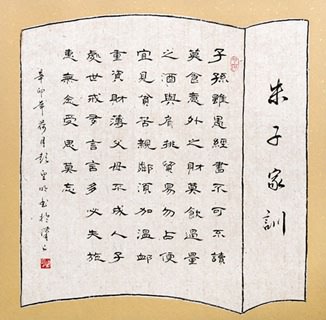 朱子家訓
子孫雖愚經書不可不讀
莫貪意外之財莫飲過量
之酒與肩挑貿易勿占便
宜見貧苦親鄰須加溫卹
重資財薄父母不成人子
處世戒多言言多必失施
惠無念受恩莫忘
辛卯年荷月彭明書於漢上